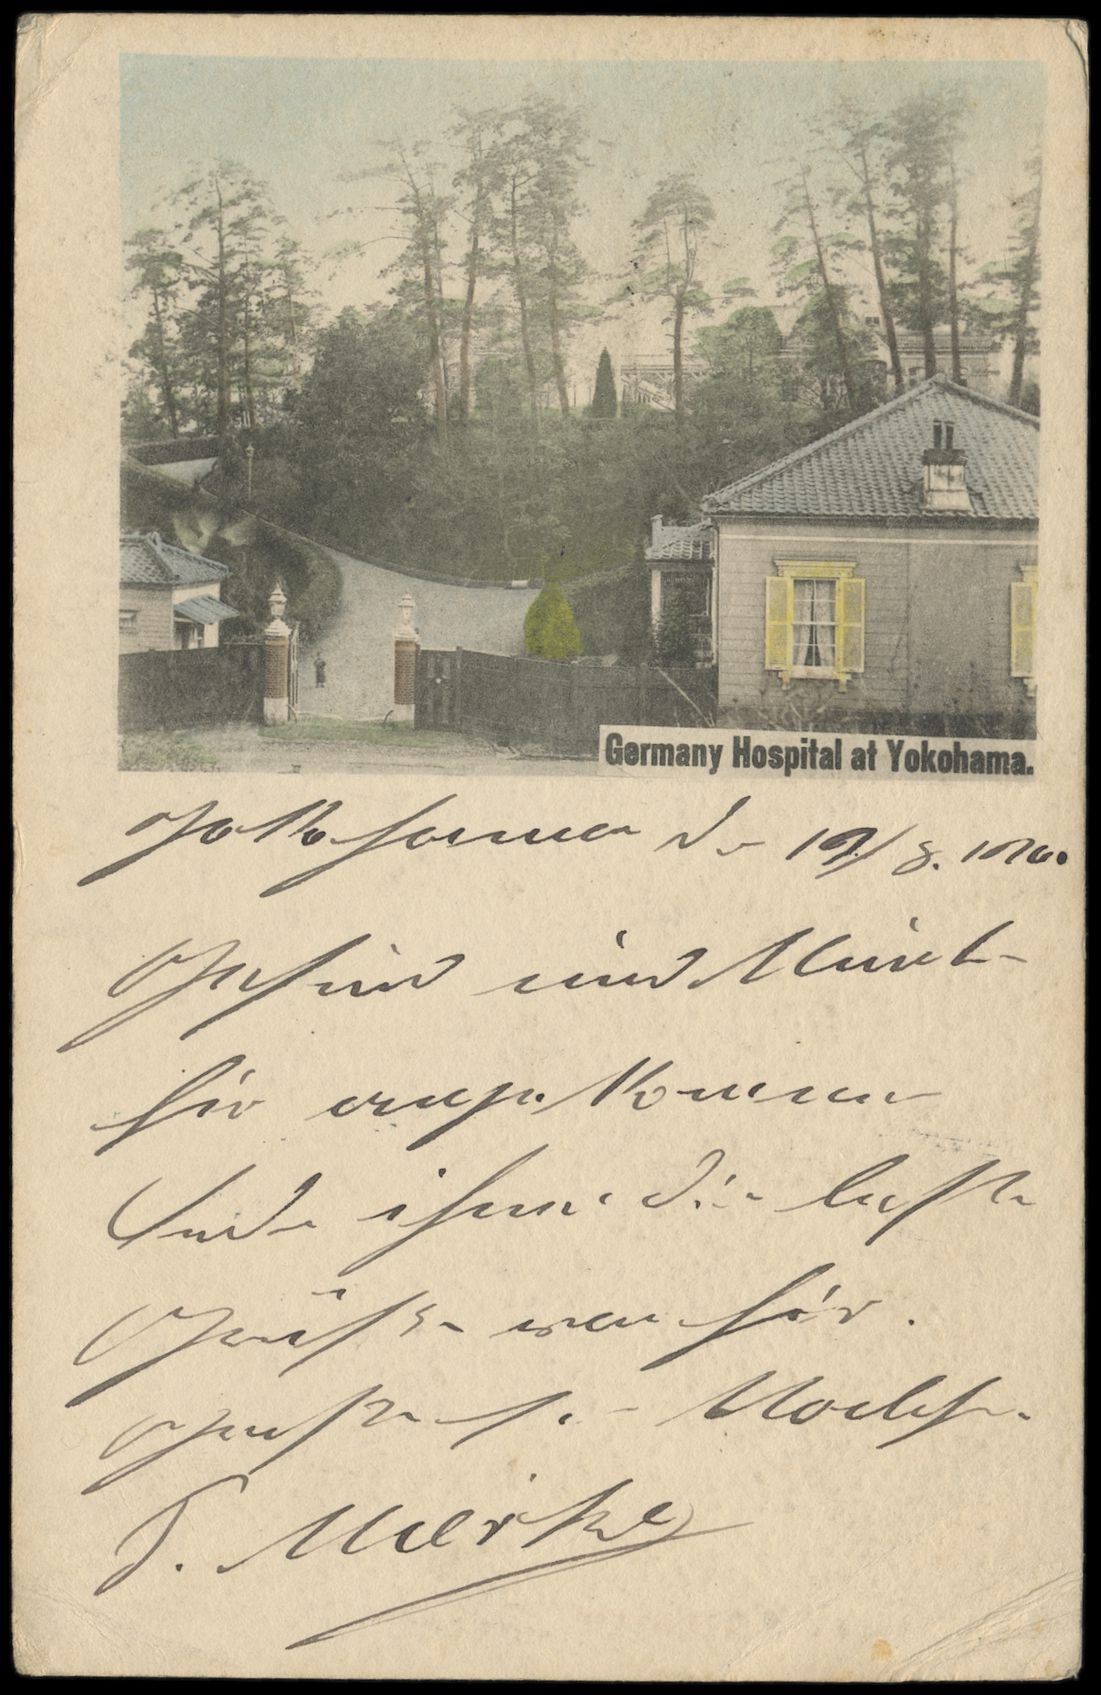 Germany Hospital at Yokohama.
Yokohama d. 19/8.
Gesund und Munter
hier angekommen
Sende ihnen die besten
Grüße von hier.
T. Merke